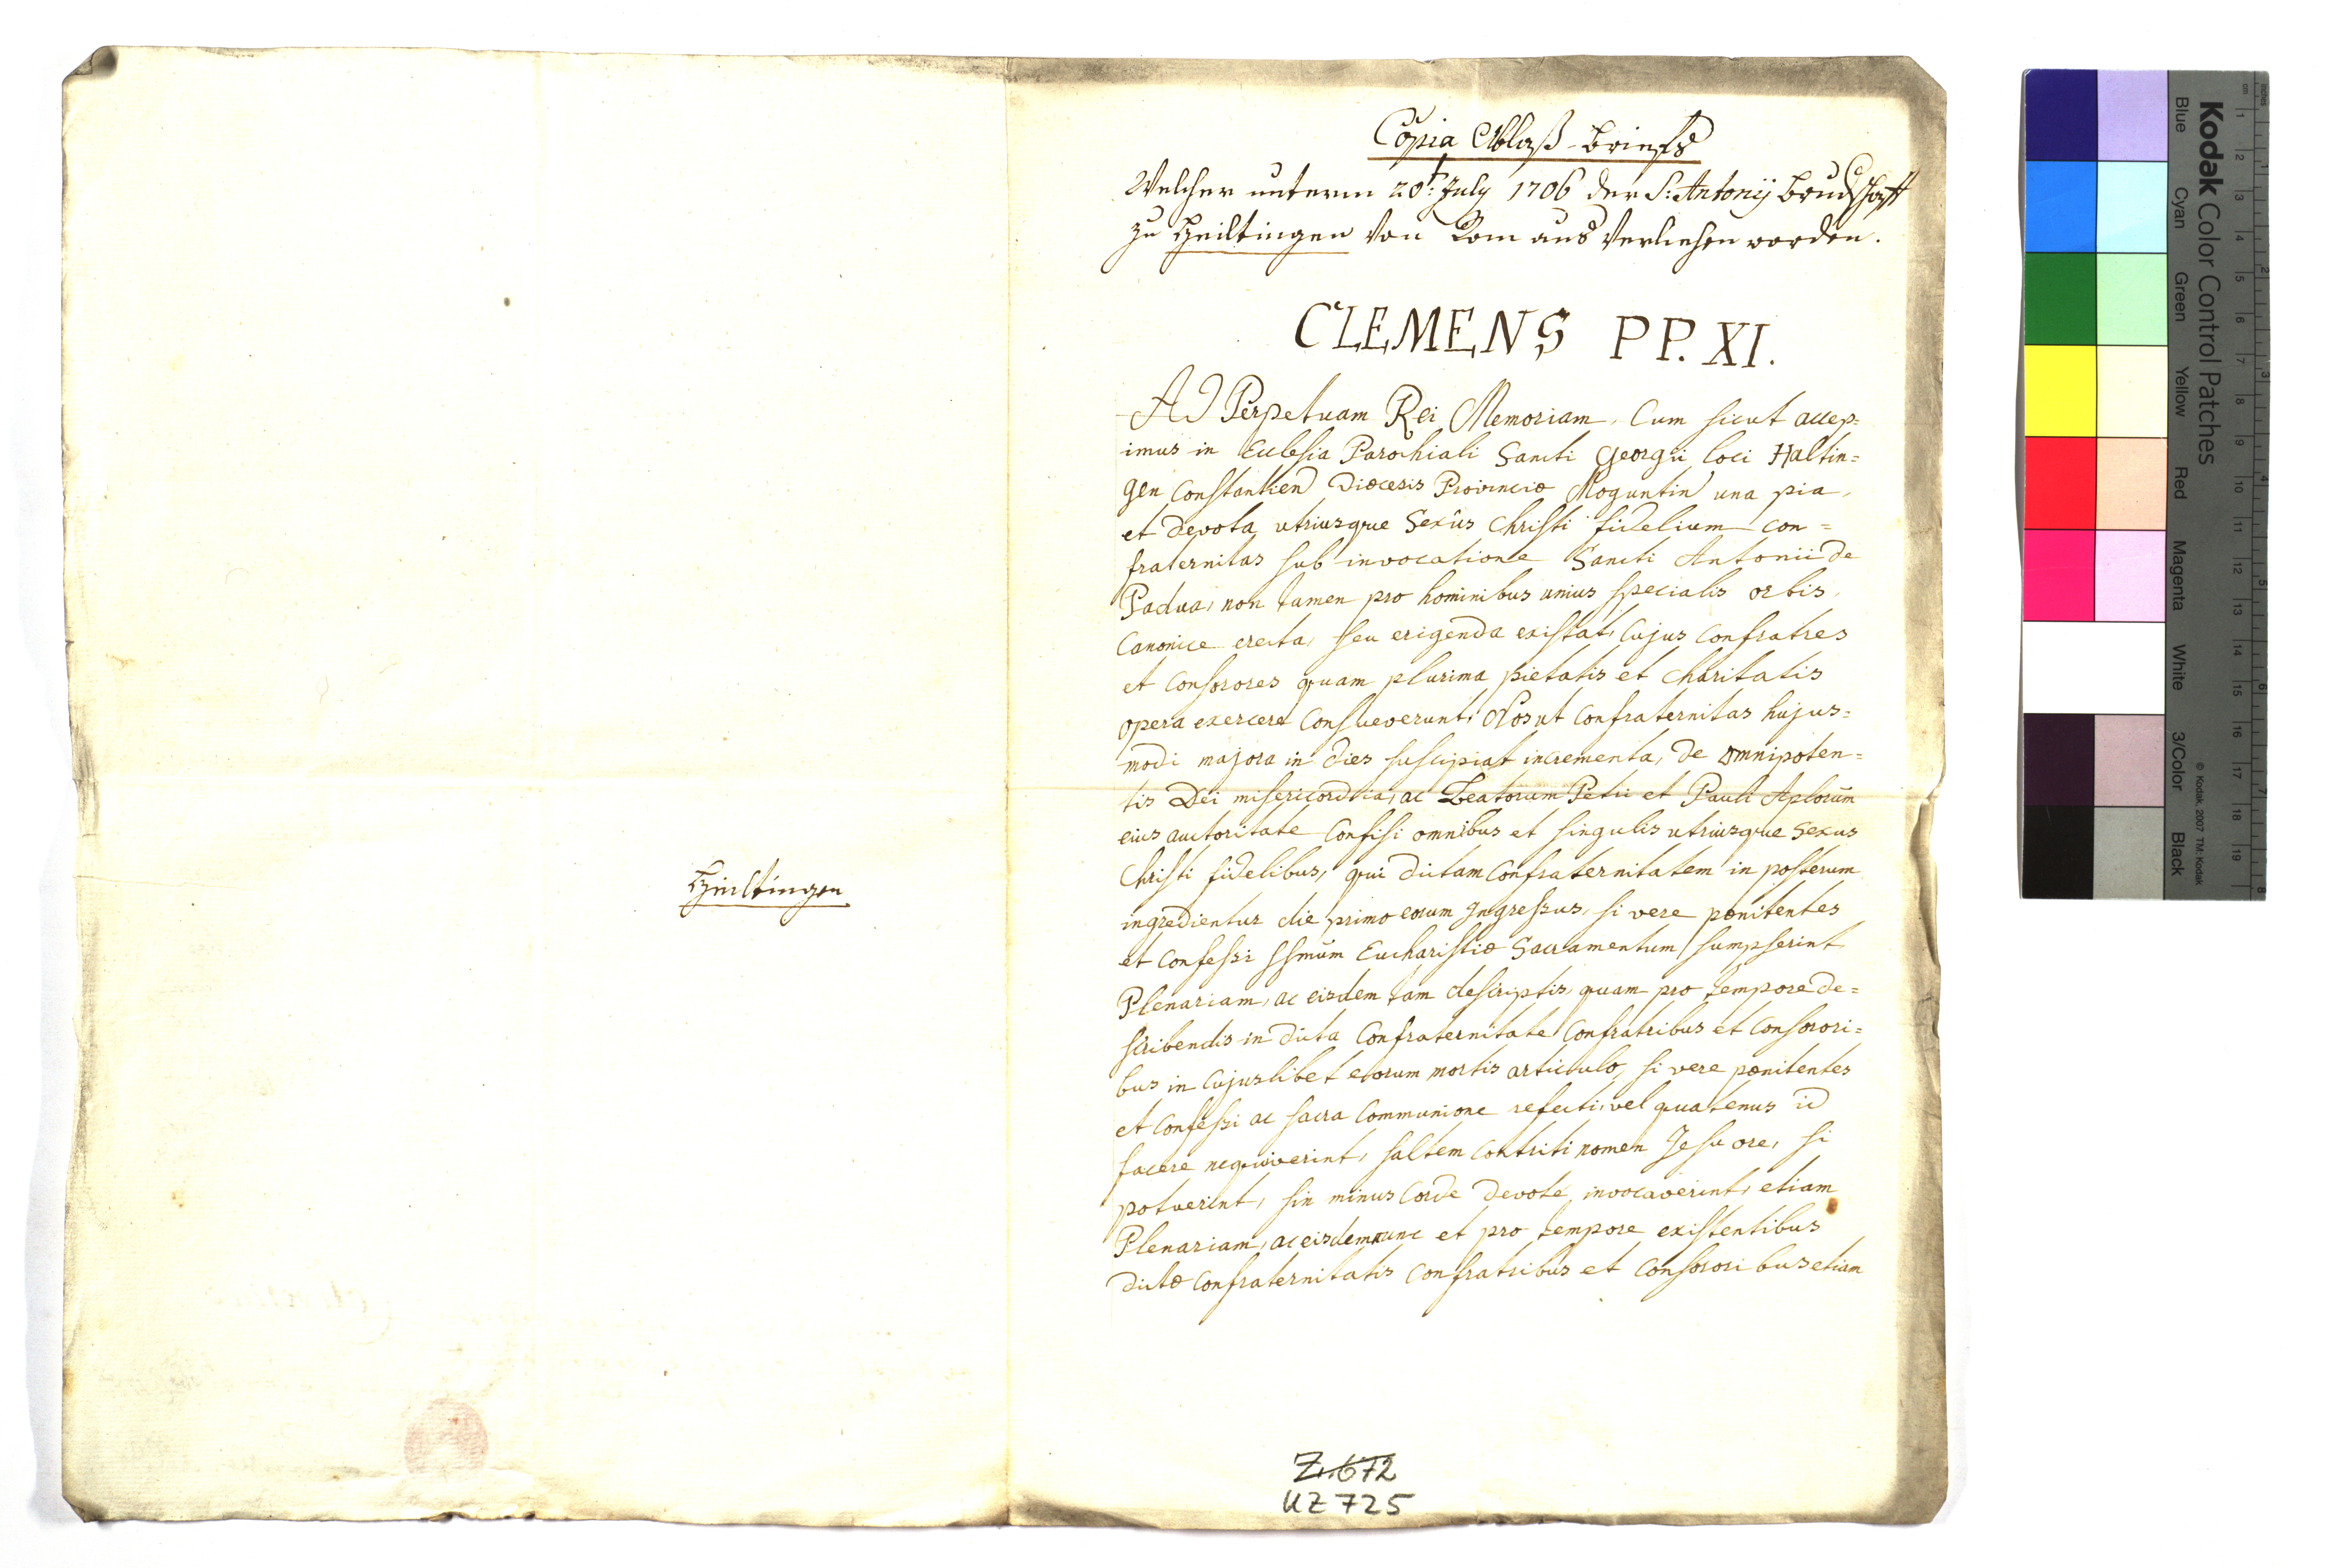 Heiltingen
Copia Ablaß-briefs
Welcher unterm 20t: July 1706 der S: Antonij bruderschafft
zu Heiltingen Von Rom aus Verliehen worden.
CLEMENS PP. XI.
AD Perpetuam Rei Memoriam. Cum sicut accep=
imus in Ecclesia Parochiali Sancti Georgii loci Haltin=
gen Constantien Diœcesis Provinciæ Moguntin una pia,
et devota utriusque Sexûs Christi fidelium con=
fraternitas sub invocatione Sancti Antonii de
Padua, non tamen pro hominibus unius specialis orbis,
Canonice erecta, seu erigenda existat, Cujus Confratres
et Consorores quam plurima pietatis et Charitatis
opera exercere Consueverunt, Nos ut Confraternitas hujus=
modi majora in dies suscipiat incrementa, de omnipoten=
tis Dei misericordia, ac Beatorum Petri et Pauli Aplorūm
eius auctoritate Confisi omnibus et singulis utriusque Sexus
Christi fidelibus, qui dictam Confraternitatem in posterum
ingredientur die primo eorum Ingressus, si vere pœnitentes
et Confessi SSmūm Eucharistiæ Sacramentum sumpserint
Plenariam, ac eisdem tam descriptis, quam pro tempore de=
scribendis in dicta Confraternitate Confratribus et Consorori=
bus in Cujuslibet eorum mortis articulo, si vere pœnitentes
et Confessi ac sacra Communione refecti, vel quatenus id
facere nequiverint, saltem Contriti nomen Jesu ore, si
potuerint, sin minus Corde devote, invocaverint, etiam
Plenariam, ac eisdem nunc et pro tempore existentibus
dictæ Confraternitatis Confratribus et Consororibus etiam
Z. 672
UZ 725
Kodak Color Control Patches
Blue Cyan Green Yellow Red Magenta White 3/Color Black
© Kodak, 2007 TM: Kodak